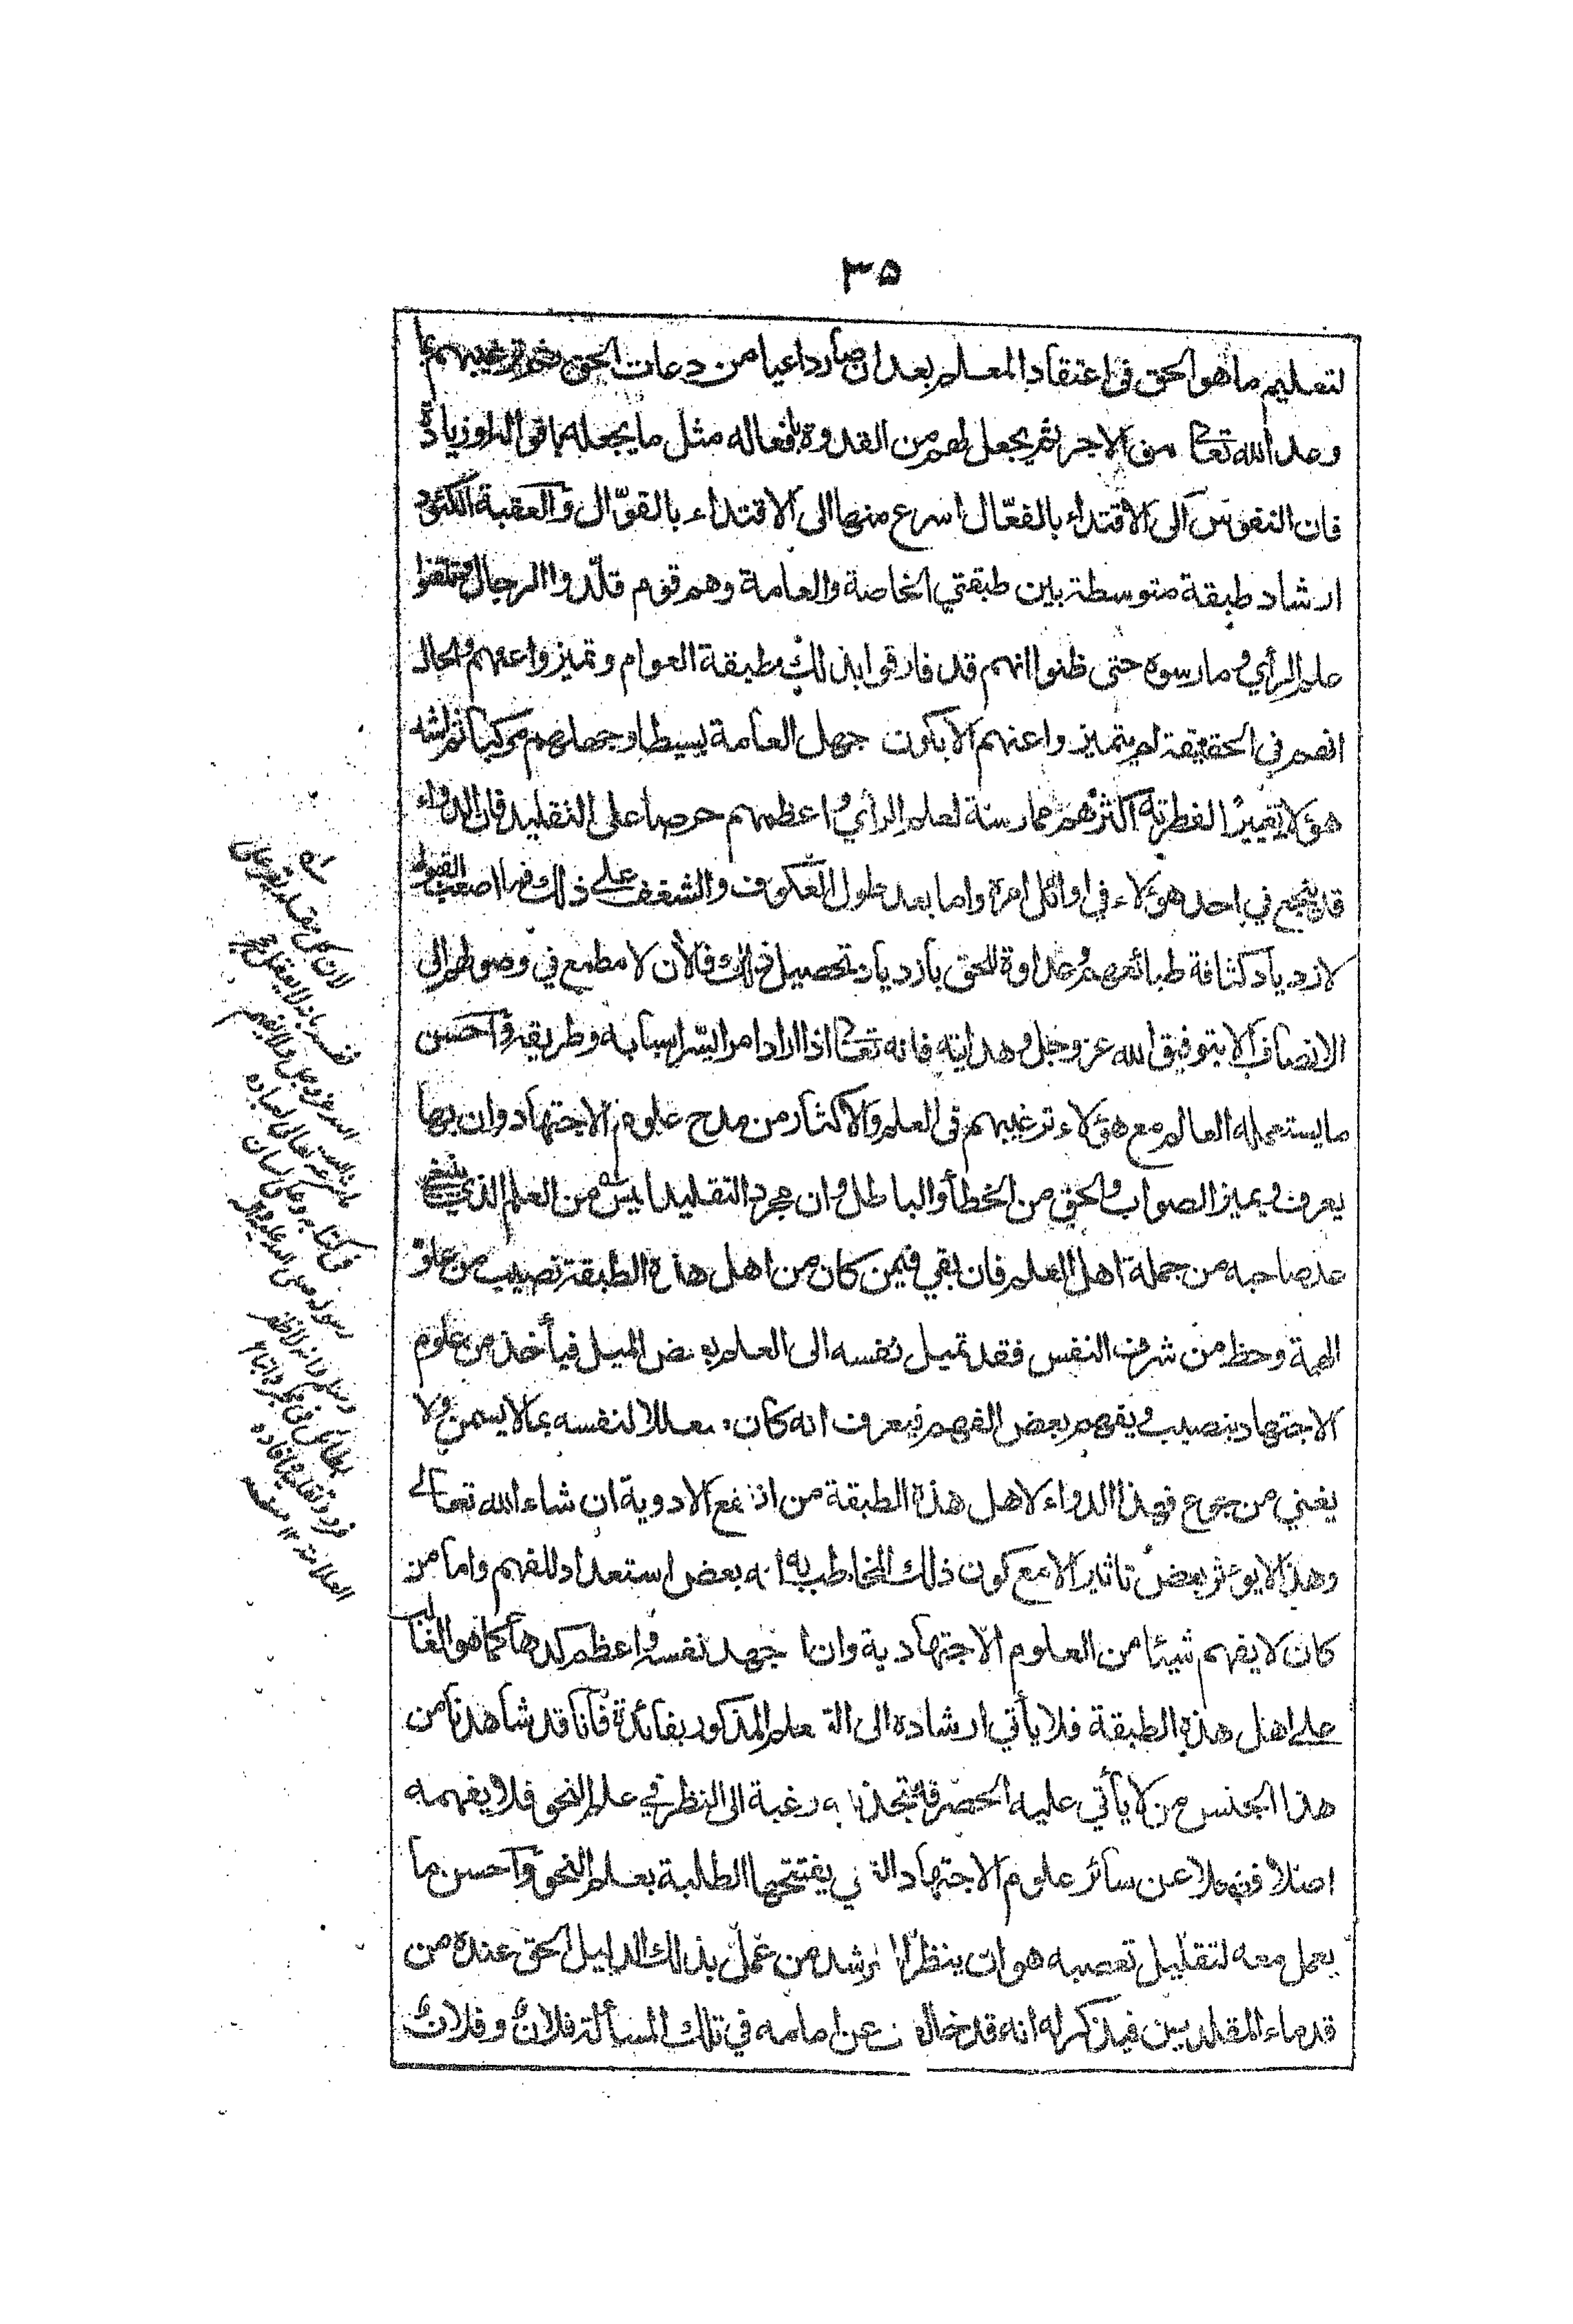 ٣٥
لتعليم ما هو الحق في اعتقاد المعلم بعد ان صار داعيا من دعات الحق نحو ترغيبهم بما
وعد الله تعالى من الاجر ثم يجعل لهم من القدوة بافعاله مثل ما يجعله باقواله او زيادة
فان النفوس الى الاقتداء بالفعّال اسرع منها الى الاقتداء بالقوّال والعقبة الكئود
ارشاد طبقة متوسطة بين طبقتي الخاصة والعامة وهم قوم قلّدوا الرجال وتلقنوا
علم الرأي ومارسوه حتى ظنوا انهم قد فارقوا بذلك طبقة العوام وتميزوا عنهم والحال
انهم في الحقيقة لم يتميزوا عنهم الا بكون جهل العامة بسيطا وجهلهم مركبا ثم اشد
هؤلاء تغييرا لفطرته اكثرهم ممارسة لعلم الرأي واعظمهم حرصا على التقليد فان الدواء
قد ينجع في احد هؤلاء في اوائل امره واما بعد طول العكوف والشغف على ذلك فما اصعب القبول
لازدياد كثافة طبائعهم وعداوة للحق بازدياد تحصيل ذلك فالآن لا مطمع في وصولهم الى
الانصاف الا بتوفيق الله عز وجل وهدايته فانه تعالى اذا اراد امرا يسّر اسبابه وطريقه واحسن
ما يستعمله العالم مع هؤلاء ترغيبهم في العلم والاكثار من مدح علوم الاجتهاد وان بها
يعرف ويميز الصواب والحق من الخطأ والباطل وان مجرد التقليد ليس من العلم الذي
عد صاحبه من جملة اهل العلم فان بقي فيمن كان من اهل هذه الطبقة نصيب من علو
الهمة وحظ من شرف النفس فقد تميل نفسه الى العلم بعض الميل فيأخذ من علوم
الاجتهاد بنصيب ويفهم بعض الفهم فيعرف انه كان معللا لنفسه بما لا يسمن ولا
يغني من جوع فهذا الدواء لاهل هذه الطبقة من انفع الادوية ان شاء الله تعالى
وهذا لا يؤثر بعض تاثير الا مع كون ذلك المخاطب به له بعض استعداد للفهم واما من
كان لا يفهم شيئا من العلوم الاجتهادية وان اجهد نفسه واعظم كدها كما هو الغالب
على اهل هذه الطبقة فلا يأتي ارشاده الى التعلم المذكور بفائدة فانا قد شاهدنا من
هذا الجنس من لا يأتي عليه الحصر قد تجذبه رغبة الى النظر في علم النحو فلا يفهمه
اصلا فضلا عن سائر علوم الاجتهاد التي يفتتحها الطلبة بعلم النحو واحسن ما
يعمل معه لتقليل تعصبه هو ان ينظر الى رشد من عمل بذلك الدليل الحق عنده من
قدماء المقلدين فيذكر له انه قد خالف عن امامه في تلك المسألة فلان وفلان
لان كل مقلد يقر على
نفسه بانه لا يعقل حجج
الله عز وجل ولا يفهم
ما شرعه الله تعالى لعباده
في كتابه وعلى لسان
رسوله صلى الله عليه واله
وسلم